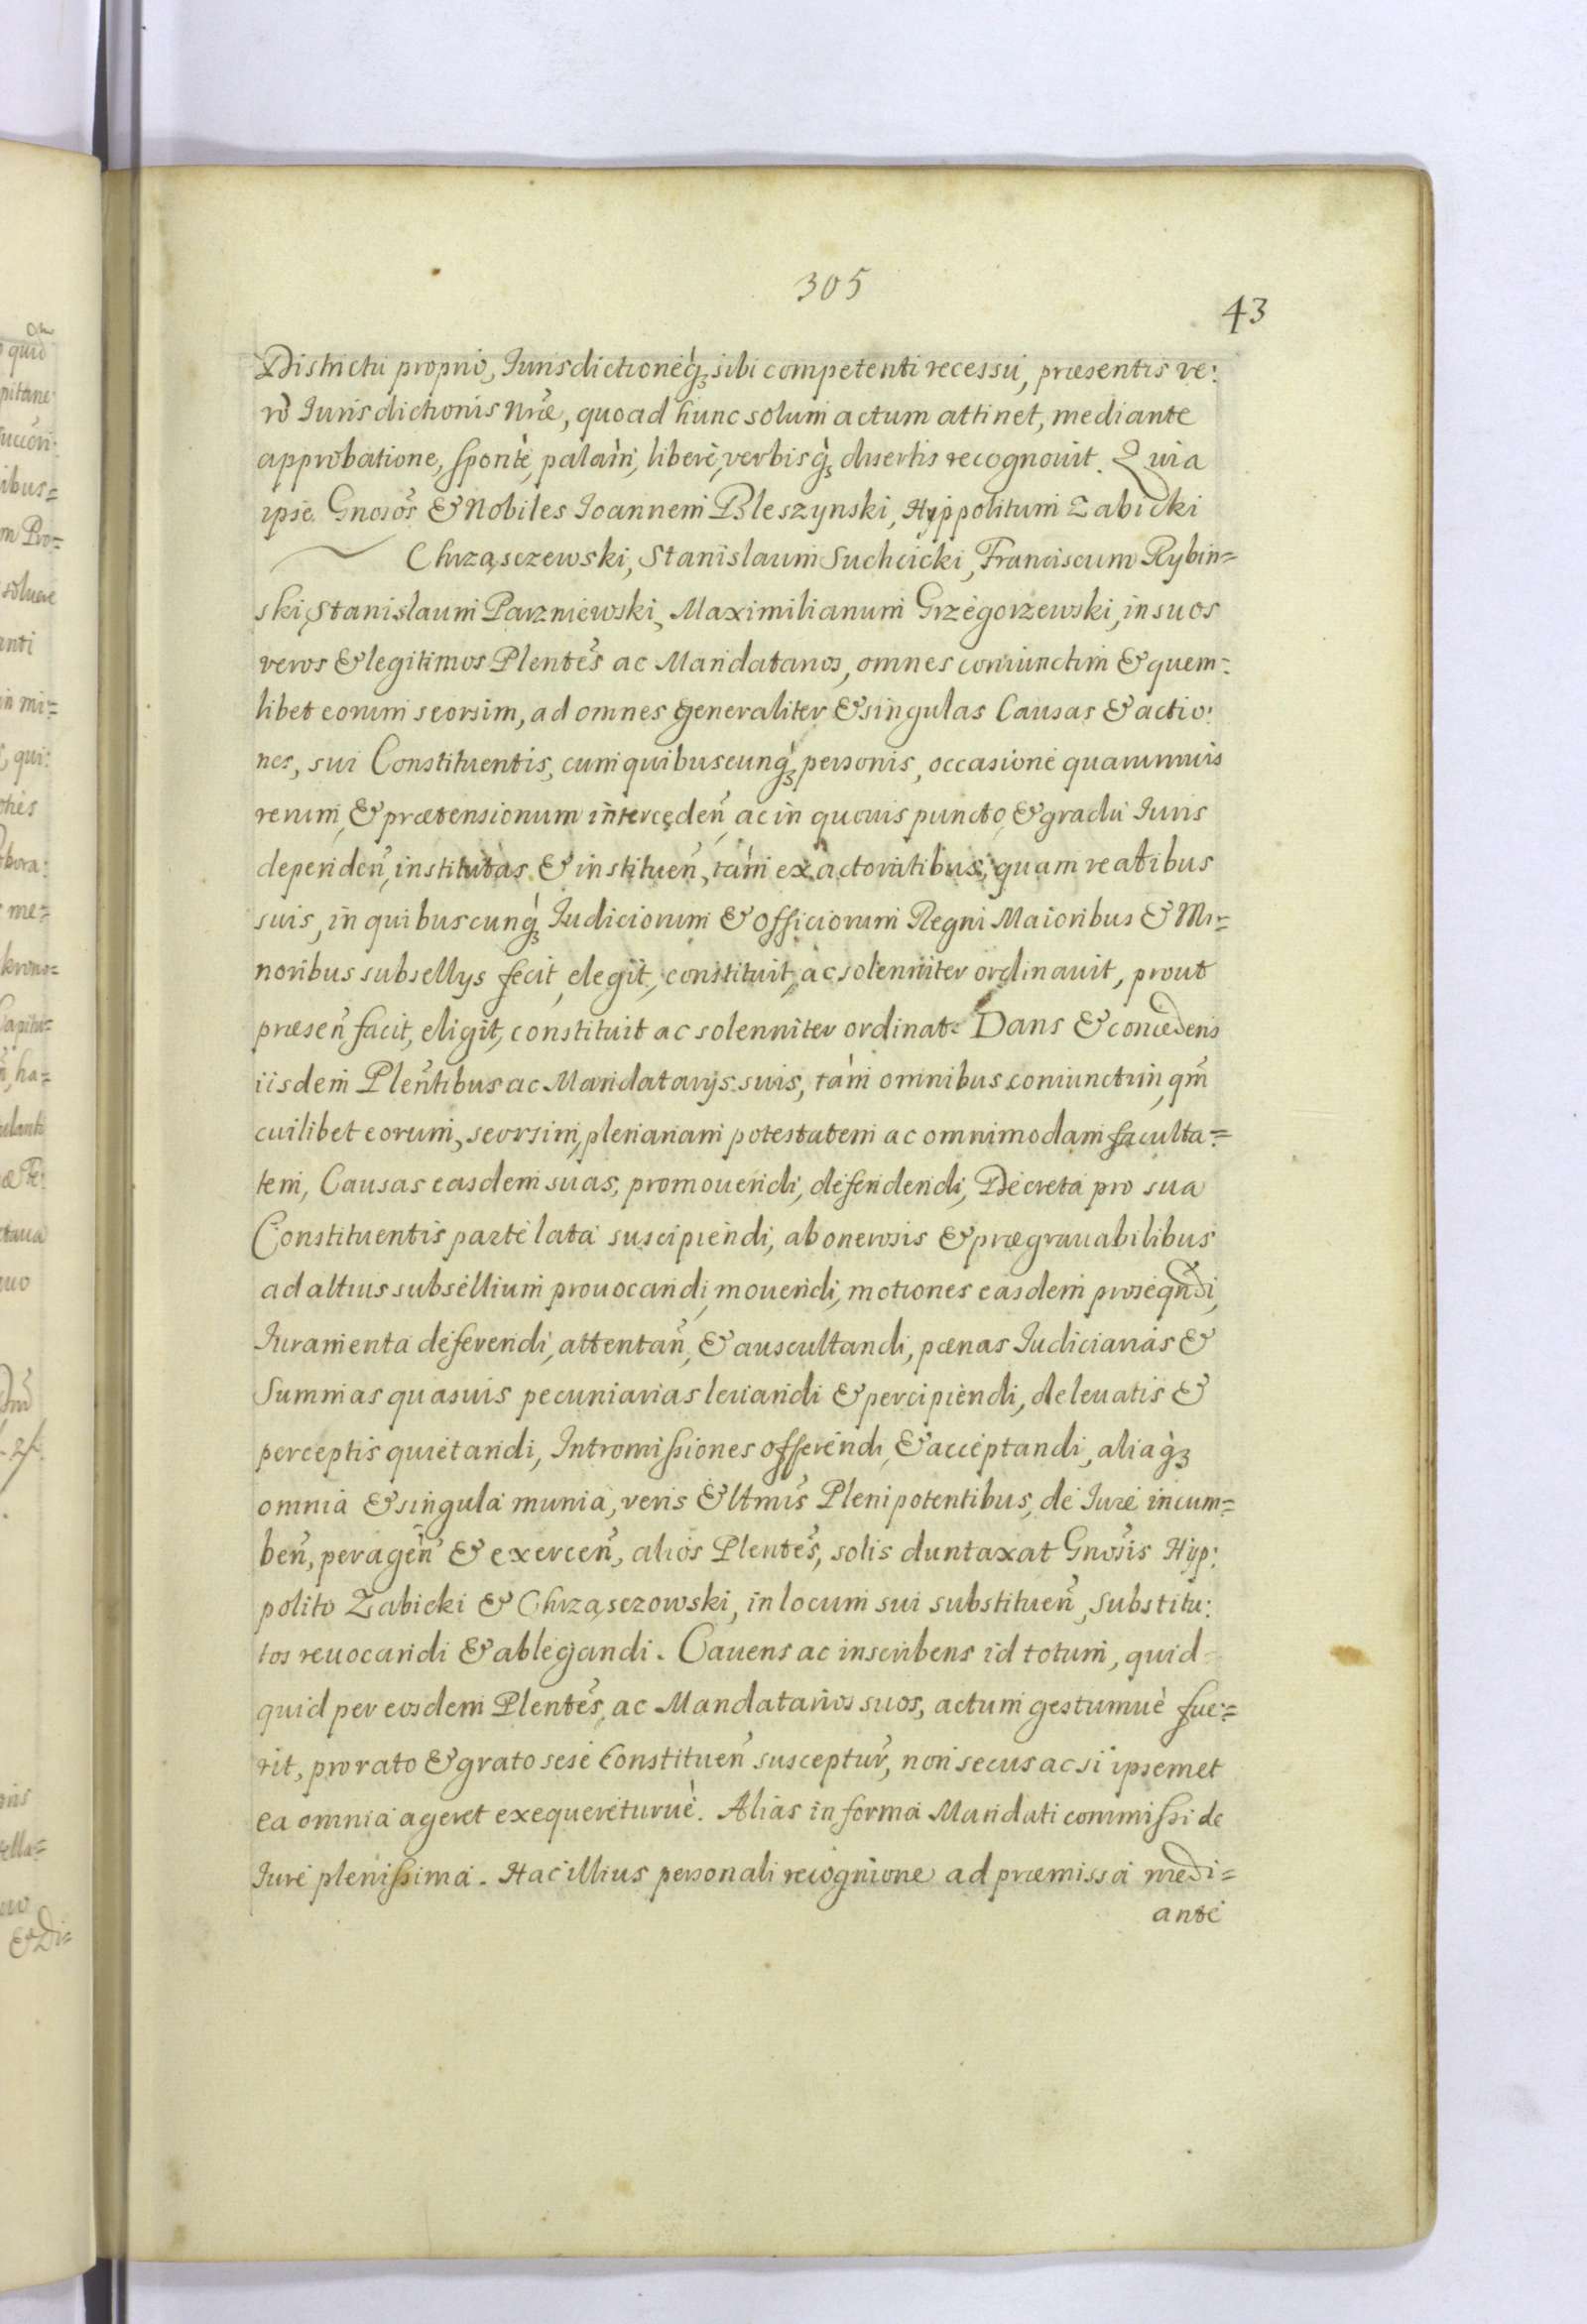 305
43
Districtu proprio, Iurisdictioneq́ꝫ sibi competenti recessu, præsentis ve:
rò Iurisdictionis nrãe, quoad hunc solum actum attinet, mediante
approbatione, spontè, palàm, liberè, verbisq́ꝫ disertis recognouit. Quia
ipse Gnosos̃ & Nobiles Ioannem Bleszynski, Hyppolitum Zabicki
Chrząsczewski, Stanislaum Suchcicki, Franciscum Rybin=
ski, Stanislaum Parzniewski, Maximilianum Grzegorzewski, in suos
veros & legitimos Plentes̃ ac Mandatarios, omnes coniunctim & quem:
libet eorum seorsim, ad omnes generaliter & singulas Causas & actio:
nes, sui Constituentis, cum quibuscunq́ꝫ personis, occasione quarumuis
rerum, & prætensionum interceden̄, ac in quouis puncto, & gradu Iuris
dependen̄, institutas & instituen̄, tàm ex actoratibus, quam reatibus
suis, in quibuscunq́ꝫ Iudiciorum & Officiorum Regni Maioribus & Mi=
noribus subsellys fecit, elegit, constituit, ac solenniter ordinauit, prout
præsen̄ facit, eligit, constituit ac solenniter ordinat. Dans & concedens
iisdem Plen̄tibus ac Mandatarijs suis, tàm omnibus coniunctim, qm̄
cuilibet eorum, seorsim, plenariam potestatem ac omnimodam faculta=
tem, Causas easdem suas, promouendi, defendendi, Decreta pro sua
Constituentis parte lata suscipiendi, ab onerosis & prægrauabilibus
ad altius subsellium prouocandi, mouendi, motiones easdem proseqn̄di,
Iuramenta deferendi, attentan̄, & auscultandi, pænas Iudiciarias &
Summas quasuis pecuniarias leuandi & percipiendi, de leuatis &
perceptis quietandi, Intromissiones offerendi, & acceptandi, aliaq́ꝫ
omnia & singula munia, veris & ltmis̃ Plenipotentibus, de Iure incum=
ben̄, peragen̄ & exercen̄, alios Plentes̃, solis duntaxat Gnosis̃ Hyp:
polito Zabicki & Chrząsczowski, in locum sui substituen̄, Substitu:
tos reuocandi & ablegandi. Cauens ac inscribens id totum, quid=
quid per eosdem Plentes̃, ac Mandatarios suos, actum gestumuè fue=
rit, pro rato & grato sese Constituen̄ suscepturr̃, non secus ac si ipsemet
ea omnia ageret exequereturuè. Alias in forma Mandati commissi de
Iure plenissima. Hac illius personali recognĩone ad præmissa medi=
ante